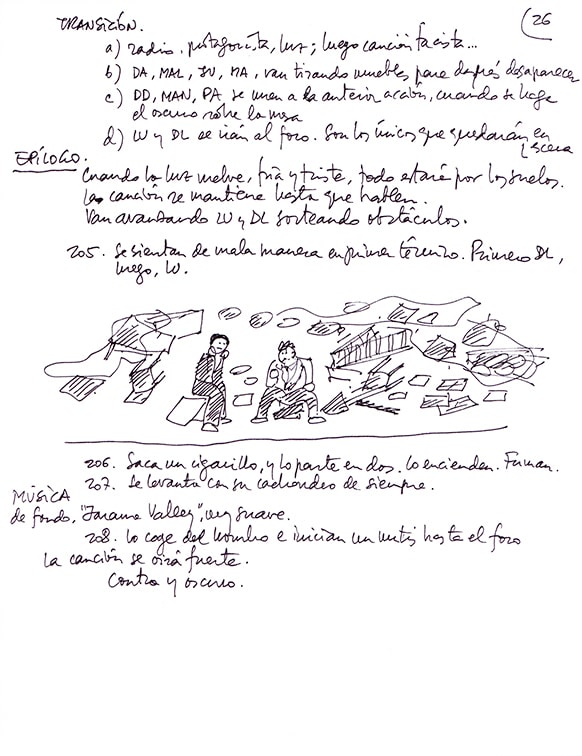 26
TRANSICIÓN.
a) radio, protagonista, luz; luego canción facista...
b) DA, MAL, JU, MA, van tirando muebles para después desaparecer
c) DD, MAN, PA se unen a la anterior acción, cuando se haga
el oscuro sobre la mesa
d) LU y DL se irán al foro. Son los únicos que quedarán en
escena
EPÍLOGO.
Cuando la luz vuelve, fría y triste, todo estará por los suelos.
La canción se mantiene hasta que hablen.
Van avanzando LU y DL sorteando obstáculos.
205. Se sientan de mala manera en primer término. Primero DL,
luego, LU.
206. Saca un cigarrillo, y lo parte en dos. Lo encienden. Fuman.
207. Se levanta con su cachondeo de siempre.
MÚSICA
de fondo, "Jarama Valley", muy suave.
208. Lo coge del hombro e inician un mutis hasta el foro
La canción se oirá fuerte.
Contra y oscuro.